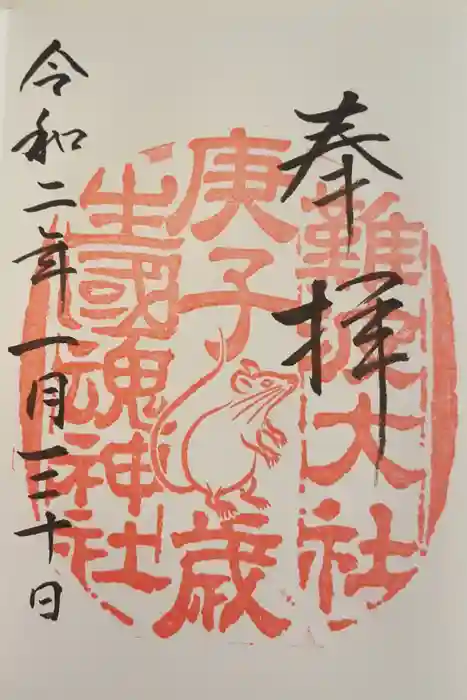 奉拝
難波大社
庚子歳
生國魂神社
令和二年一月三十日